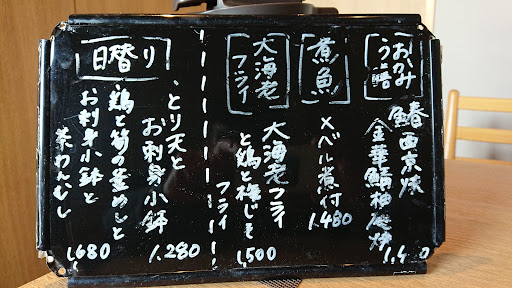 おかみ
う膳
鰆西京焼
金華鯖柚庵焼
煮魚
メバル煮付
1,480
大海老
フライ
大海老フライ
と鶏と梅じそ
フライ
1,500
日替り
、とり天と
お刺身小鉢
1,280
、鶏と筍の釜めしと
お刺身小鉢と
茶わんむし
1,680